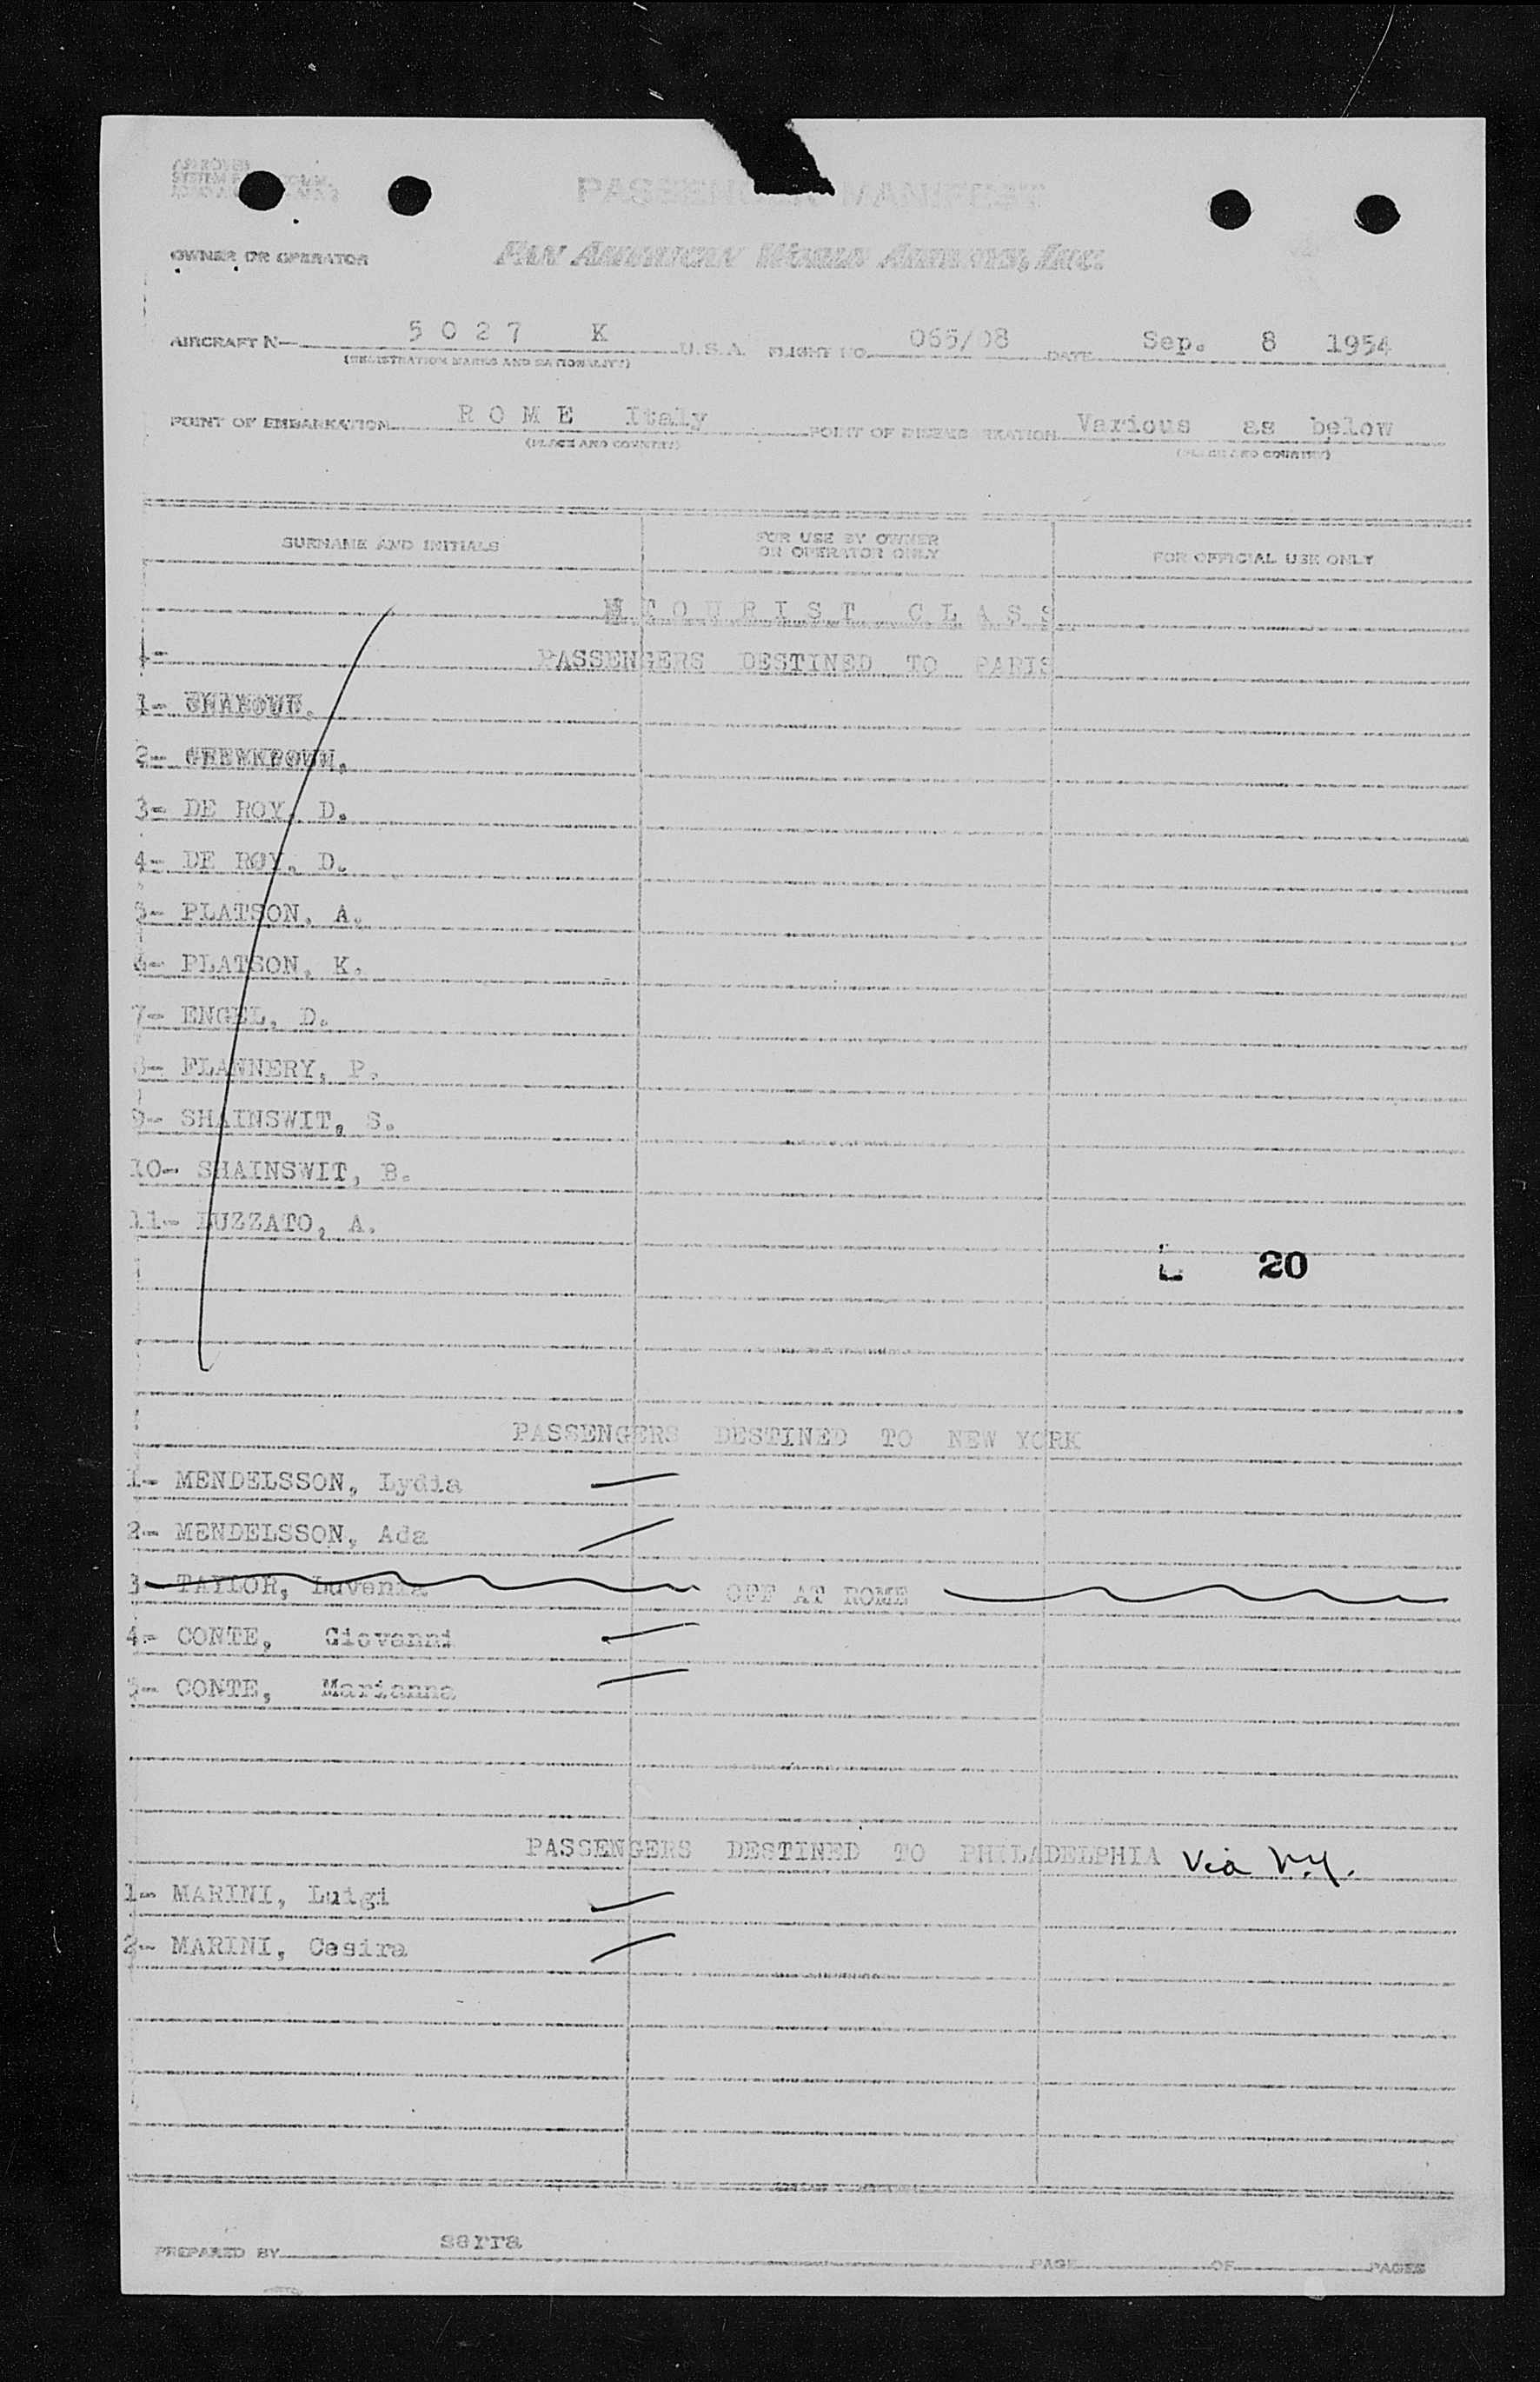 PASSENGER MANIFEST
OWNER OR OPERATOR PAN AMERICAN WORLD AIRWAYS, INC.
AIRCRAFT N— 5 0 2 7 K U.S.A. FLIGHT NO. 065/08 DATE Sep. 8 1954
(REGISTRATION MARKS AND NATIONALITY)
POINT OF EMBARKATION R O M E Italy POINT OF DISEMBARKATION Various as below
(PLACE AND COUNTRY) (PLACE AND COUNTRY)
SURNAME AND INITIALS FOR USE BY OWNER OR OPERATOR ONLY FOR OFFICIAL USE ONLY
T O U R I S T C L A S S
1-
PASSENGERS DESTINED TO PARIS
1-
2-
3- DE ROY, D.
4- DE ROY, D.
5- PLATSON, A.
6- PLATSON, K.
7- ENGEL, D.
8- FLANNERY, P.
9- SHAINSWIT, S.
10- SHAINSWIT, B.
11- LUZZATO, A.
20
PASSENGERS DESTINED TO NEW YORK
1- MENDELSSON, Lydia
2- MENDELSSON, Ada
3- TAYLOR, Luvenia OFF AT ROME
4- CONTE, Giovanni
5- CONTE, Marianna
PASSENGERS DESTINED TO PHILADELPHIA Via N.Y.
1- MARINI, Luigi
2- MARINI, Cesira
PREPARED BY serra PAGE OF PAGES